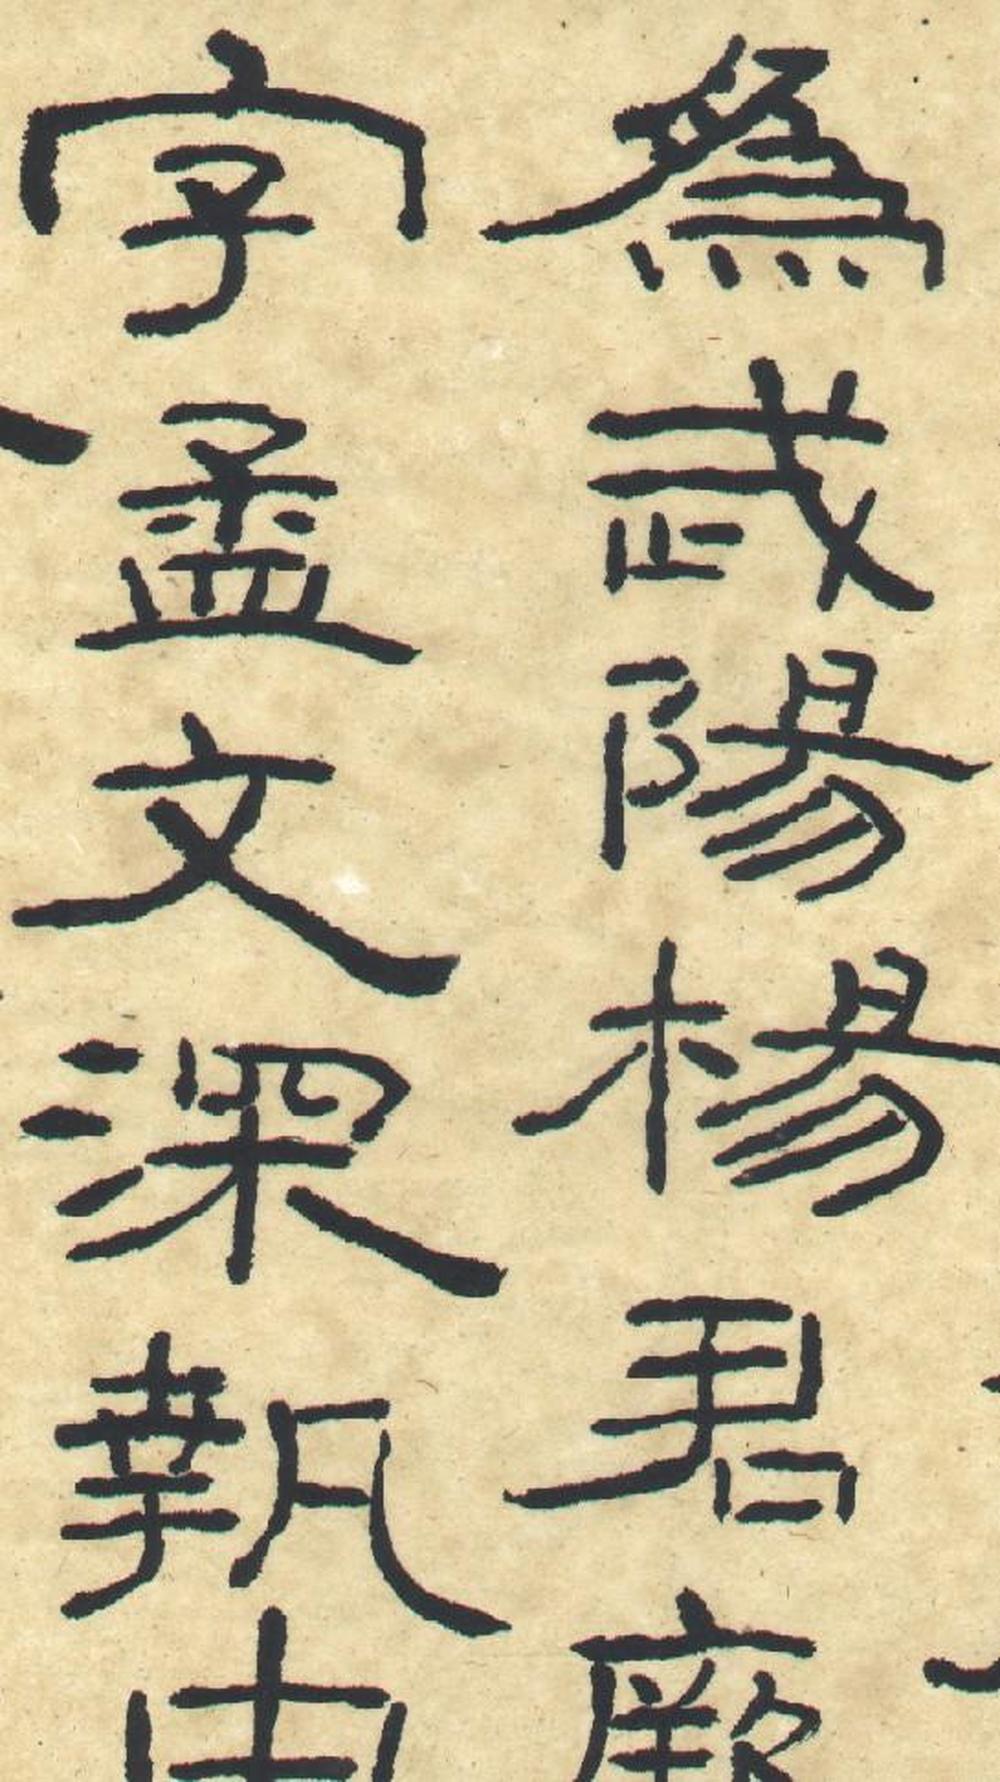 為武陽楊君厥
字孟文深執